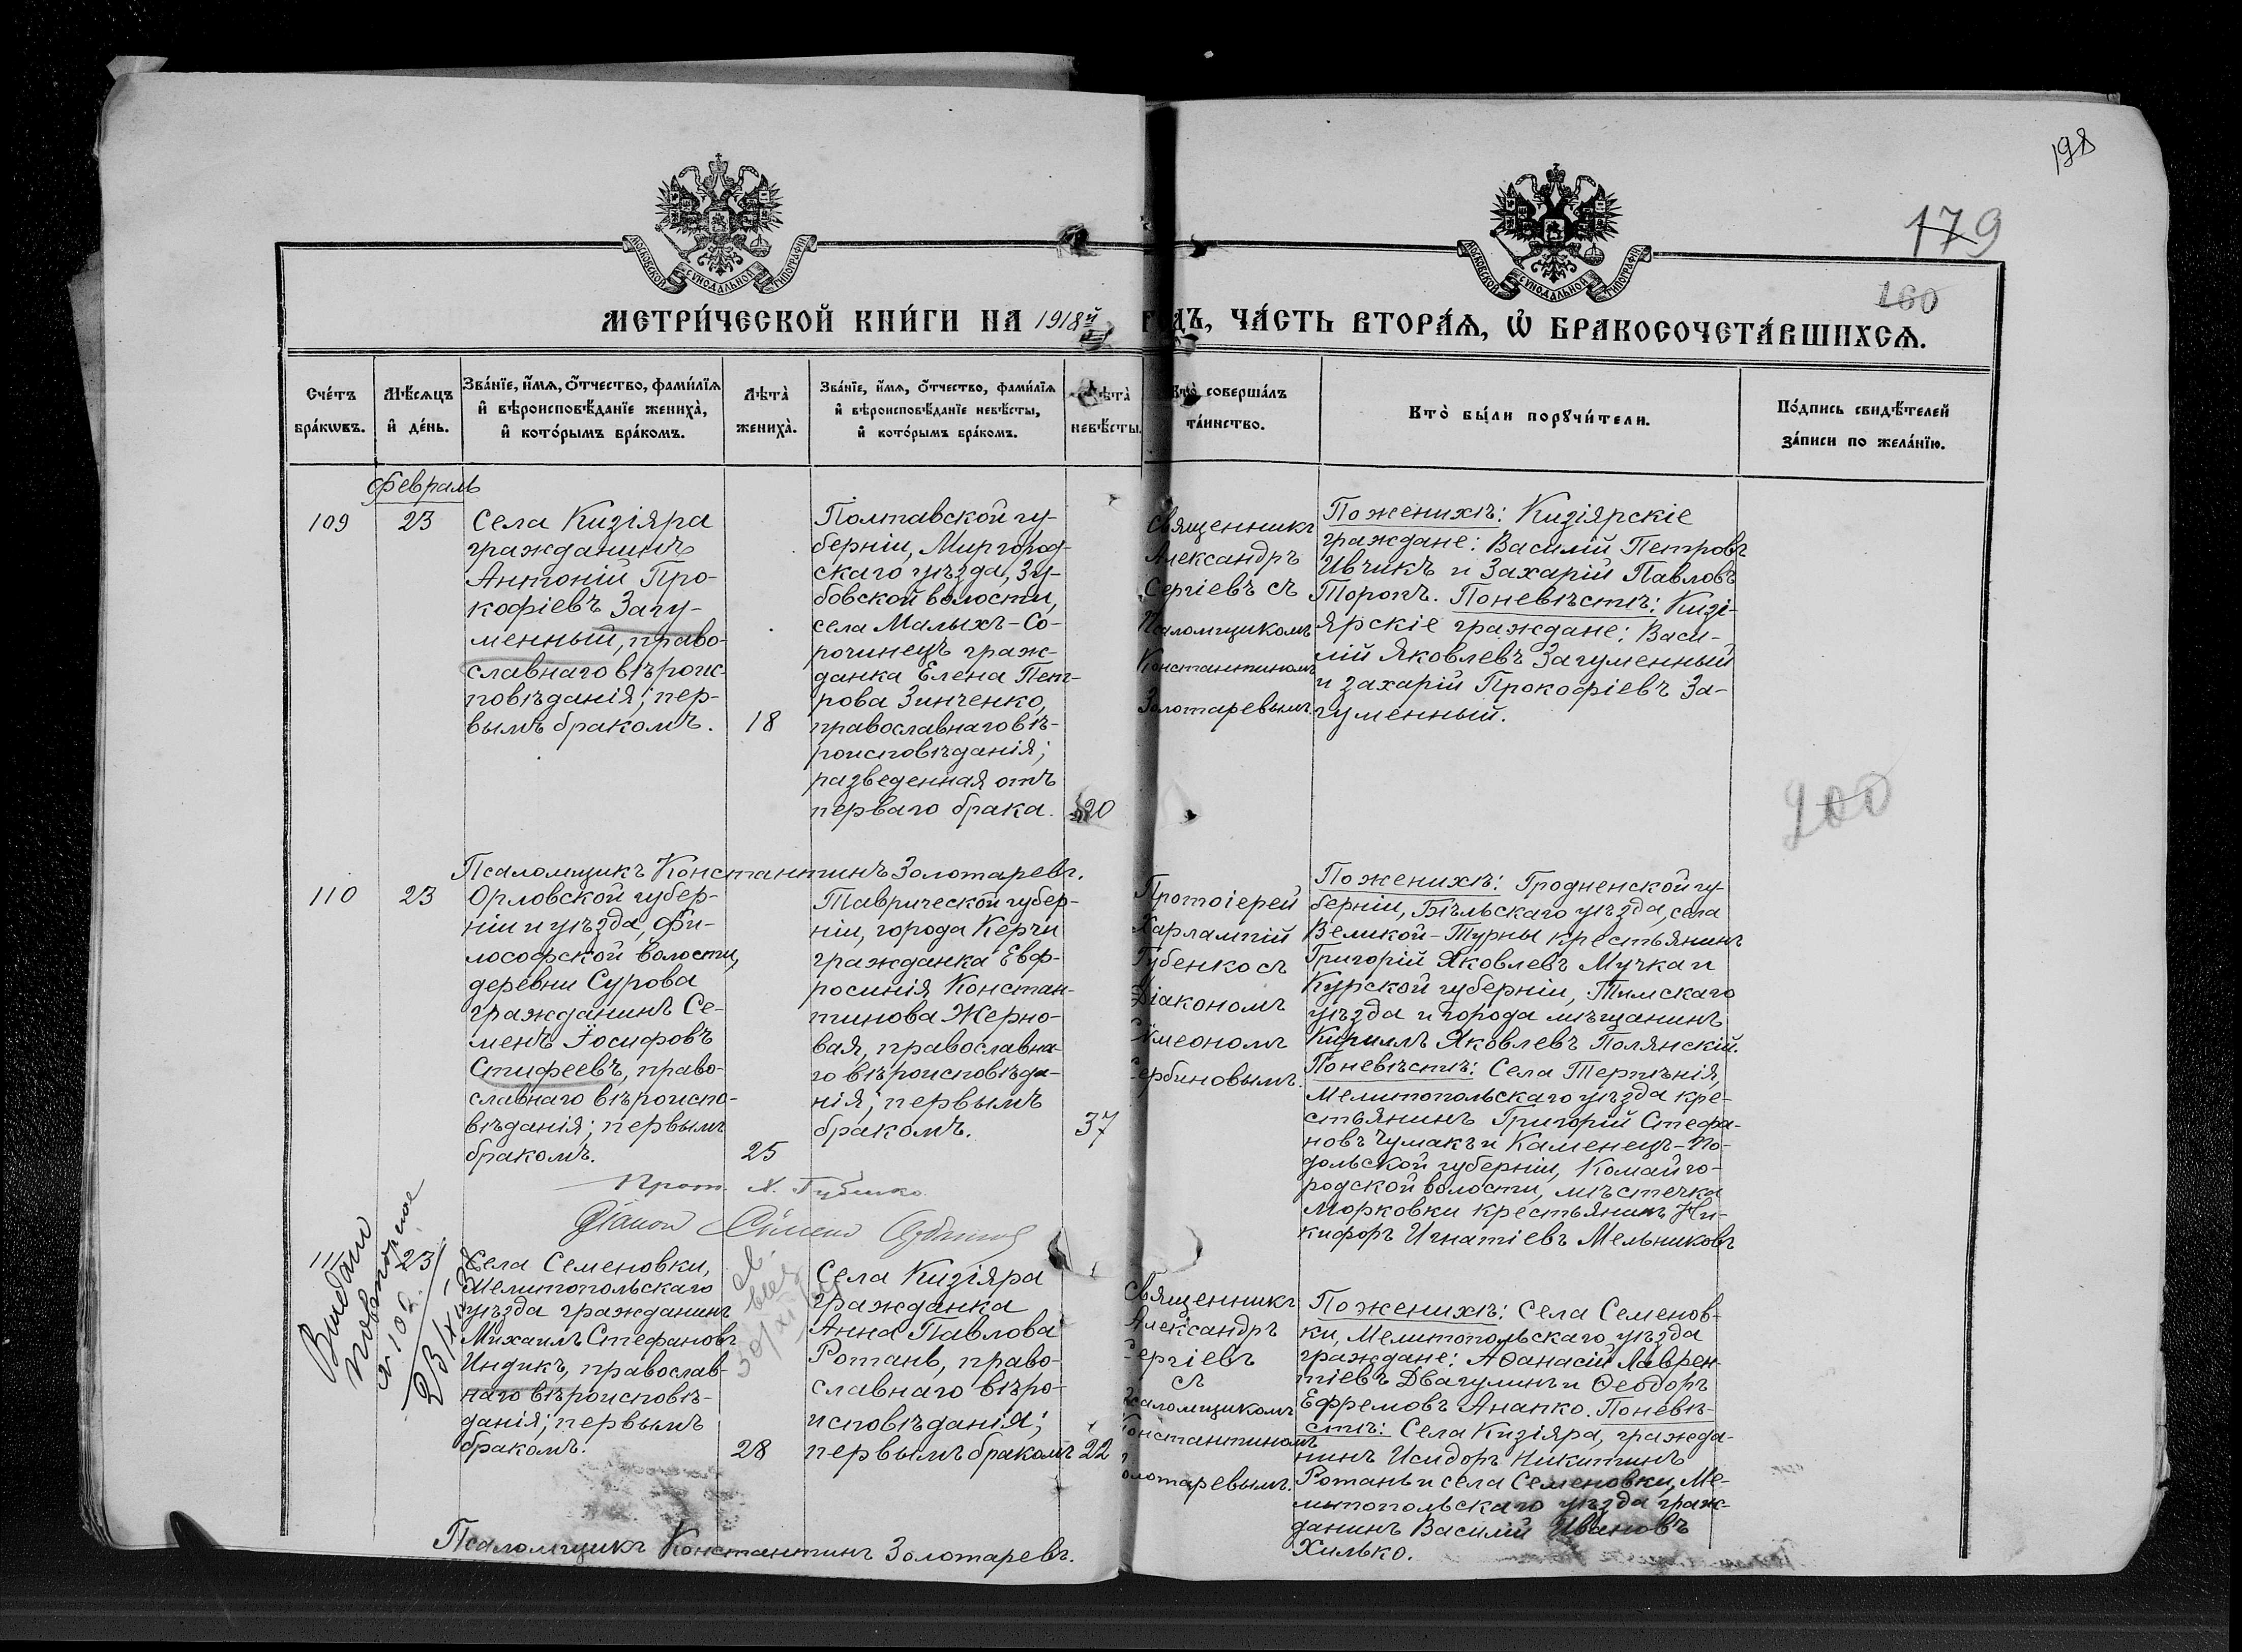 198
179
160
МОСКОВСКОЙ СУНОДАЛЬНОЙ ТИПОГРАФІИ
МОСКОВСКОЙ СУНОДАЛЬНОЙ ТИПОГРАФІИ
МЕТРИ́ЧЕСКОЙ КНИ́ГИ НА 1918й ГОДЪ, ЧА́СТЬ ВТОРА́Ѧ, Ѽ БРАКОСОЧЕТА́ВШИХСѦ.
Сче́тъ бра́кѡвъ.
Мѣ́сѧцъ и҆ де́нь.
Зва́нїе, и҆́мѧ, ѻ҆́тчество, фами́лїѧ и҆ вѣроисповѣ́данїе жениха̀, и҆ кото́рымъ бра́комъ.
Лѣта̀ жениха̀.
Зва́нїе, и҆́мѧ, ѻ҆́тчество, фами́лїѧ и҆ вѣроисповѣ́данїе невѣ́сты, и҆ кото́рымъ бра́комъ.
Лѣта̀ невѣ́сты.
Кто̀ соверша́лъ та́инство.
Кто̀ бы́ли порꙋчи́тели.
По́дпись свидѣ́телей за́писи по жела́нїю.
Февраль
109
23
Села Кизіяра
гражданинъ
Антоній Про-
кофіевъ Загу-
менный, право-
славнаго вѣроис-
повѣданія; пер-
вымъ бракомъ.
18
Полтавской гу-
берніи, Миргород-
скаго уѣзда, Зу-
бовской волости,
села Малыхъ-Со-
рочинецъ граж-
данка Елена Пет-
рова Зинченко,
православнаго вѣ-
роисповѣданія;
разведенная отъ
перваго брака.
20
Священникъ
Александръ
Сергіевъ съ
Псаломщикомъ
Константиномъ
Золотаревымъ.
По женихѣ: Кизіярскіе
граждане: Василій Петровъ
Ивчикъ и Захарій Павловъ
Торопъ. По невѣстѣ: Кизі-
ярскіе граждане: Васи-
лій Яковлевъ Загуменный
и Захарій Прокофіевъ За-
гуменный.
200
Псаломщикъ Константинъ Золотаревъ.
110
23
Орловской губер-
ніи и уѣзда, Фи-
лософской волости,
деревни Сурова
гражданинъ Се-
менъ Іосифовъ
Стифеевъ, право-
славнаго вѣроиспо-
вѣданія; первымъ
бракомъ.
25
Таврической губер-
ніи, города Керчи
гражданка Евф-
росинія Констан-
тинова Жерно-
вая, православна-
го вѣроисповѣда-
нія; первымъ
бракомъ.
37
Протоіерей
Харлампій
Губенко съ
Діакономъ
Симеономъ
Сербиновымъ.
По женихѣ: Гродненской гу-
берніи, Бѣльскаго уѣзда, села
Великой-Турны крестьянинъ
Григорій Яковлевъ Мучка и
Курской губерніи, Тимскаго
уѣзда и города мѣщанинъ
Кириллъ Яковлевъ Полянскій.
По невѣстѣ: Села Терпѣнія,
Мелитопольскаго уѣзда кре-
стьянинъ Григорій Стефа-
новъ Чумакъ и Каменецъ-По-
дольской губерніи, Комайго-
родской волости, мѣстечка
Морковки крестьянинъ Ни-
кифоръ Игнатіевъ Мельниковъ
Прот. Х. Губенко
Діакон Симеон Сербинов
111
23
Села Семеновки,
Мелитопольскаго
уѣзда гражданинъ
Михаилъ Стефановъ
Индикъ, православ-
наго вѣроисповѣ-
данія; первымъ
бракомъ.
28
Села Кизіяра
гражданка
Анна Павлова
Ротань, право-
славнаго вѣро-
исповѣданія;
первымъ бракомъ
22
Священникъ
Александръ
Сергіевъ
съ
Псаломщикомъ
Константиномъ
Золотаревымъ.
По женихѣ: Села Семенов-
ки, Мелитопольскаго уѣзда
граждане: Аѳанасій Лаврен-
тіевъ Двагулинъ и Ѳеодоръ
Ефремовъ Ананко. По невѣ-
стѣ: Села Кизіяра, гражда-
нинъ Исидоръ Никитинъ
Ротань и села Семеновки, Ме-
литопольскаго уѣзда граж-
данинъ Василій Ивановъ
Хилько.
Видан
повторное
Псаломщикъ Константинъ Золотаревъ.